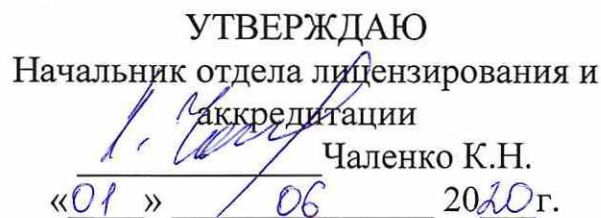 УТВЕРЖДАЮ
Начальник отдела лицензирования и
аккредитации
Чаленко К.Н.
«01» 06 2020г.